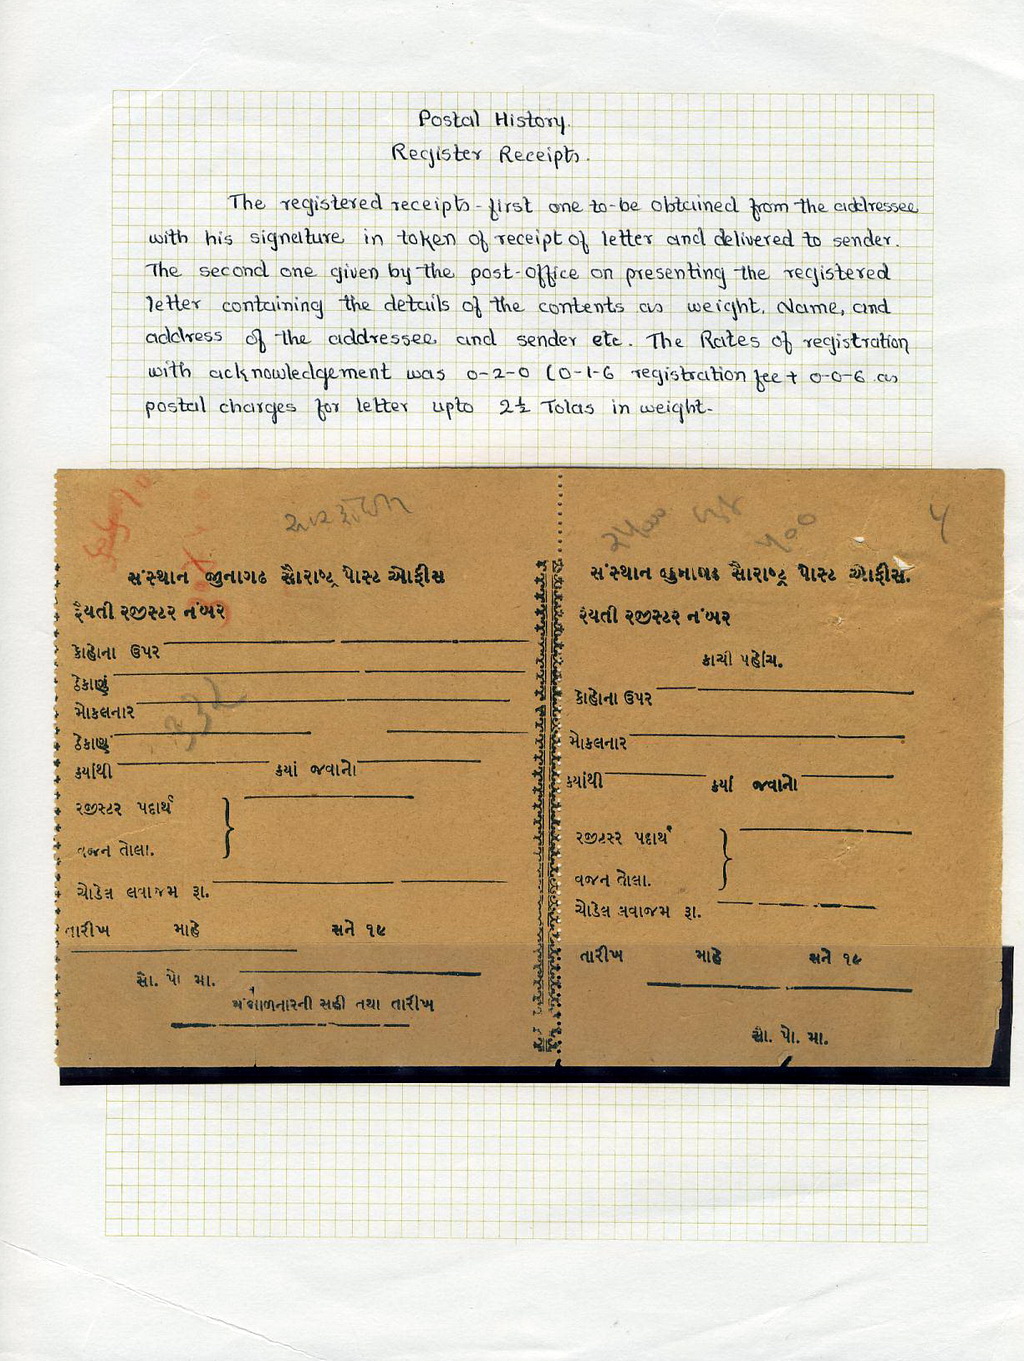 Postal History.
Register Receipts.
The registered receipts - first one to-be obtained from the addressee
with his signature in token of receipt of letter and delivered to sender.
The second one given by the post-office on presenting the registered
letter containing the details of the contents as weight, Name, and
address of the addressee and sender etc. The Rates of registration
with acknowledgement was 0-2-0 (0-1-6 registration fee + 0-0-6 as
postal charges for letter upto 2½ Tolas in weight.
સંસ્થાન જીુનાગઢ સૌરાષ્ટ્ર પોસ્ટ ઓફીસ
રૈયતી રજીસ્ટર નંબર
કોહોના ઉપર
ઠેકાણું
મોકલનાર
ઠેકાણું
કયાંથી કયાં જવાનો
રજીસ્ટર પદાર્થ
વજન તોલા.
ચોડેલ લવાજમ રૂા.
તારીખ માહે સને ૧૯
સૌ. પો. મા.
સંભાળનારની સહી તથા તારીખ
સંસ્થાન જુનાગઢ સૌરાષ્ટ્ર પોસ્ટ ઓફીસ.
રૈયતી રજીસ્ટર નંબર
કાચી પહોંચ.
કોહોના ઉપર
મોકલનાર
કયાંથી કયાં જવાનો
રજીસ્ટર પદાર્થ
વજન તોલા.
ચોડેલ લવાજમ રૂા.
તારીખ માહે સને ૧૯
સૌ. પો. મા.